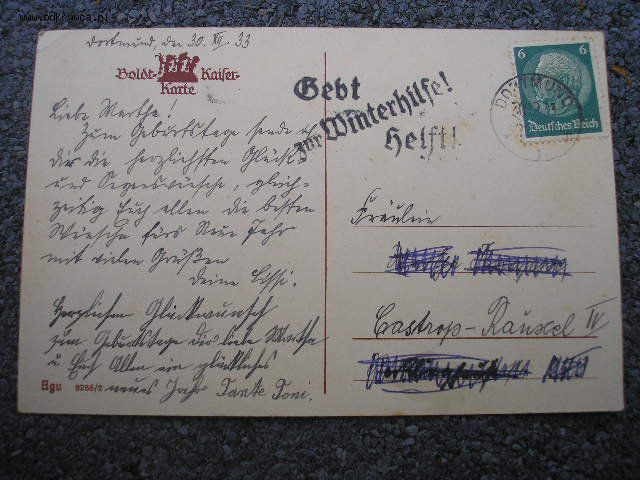 www.odkrywca.pl
Dortmund, den 30. XII. 33
Boldt- Kaiser-
Karte
Liebe Martha!
Zum Geburtstage sende ich
dir die herzlichsten Glück-
und Segenswünsche, gleich-
zeitig Euch allen die besten
Wünsche fürs Neue Jahr
mit vielen Grüßen
Deine Lissi.
Herzlichen Glückwunsch
zum Geburtstage dir liebe Martha
u. Euch Allen ein glückliches
neues Jahr Tante Toni.
Agu 9266/2
Gebt
zur Winterhilfe!
Helft!
6 6
Deutsches Reich
DORTMUND
Fräulein
Castrop-Rauxel IV